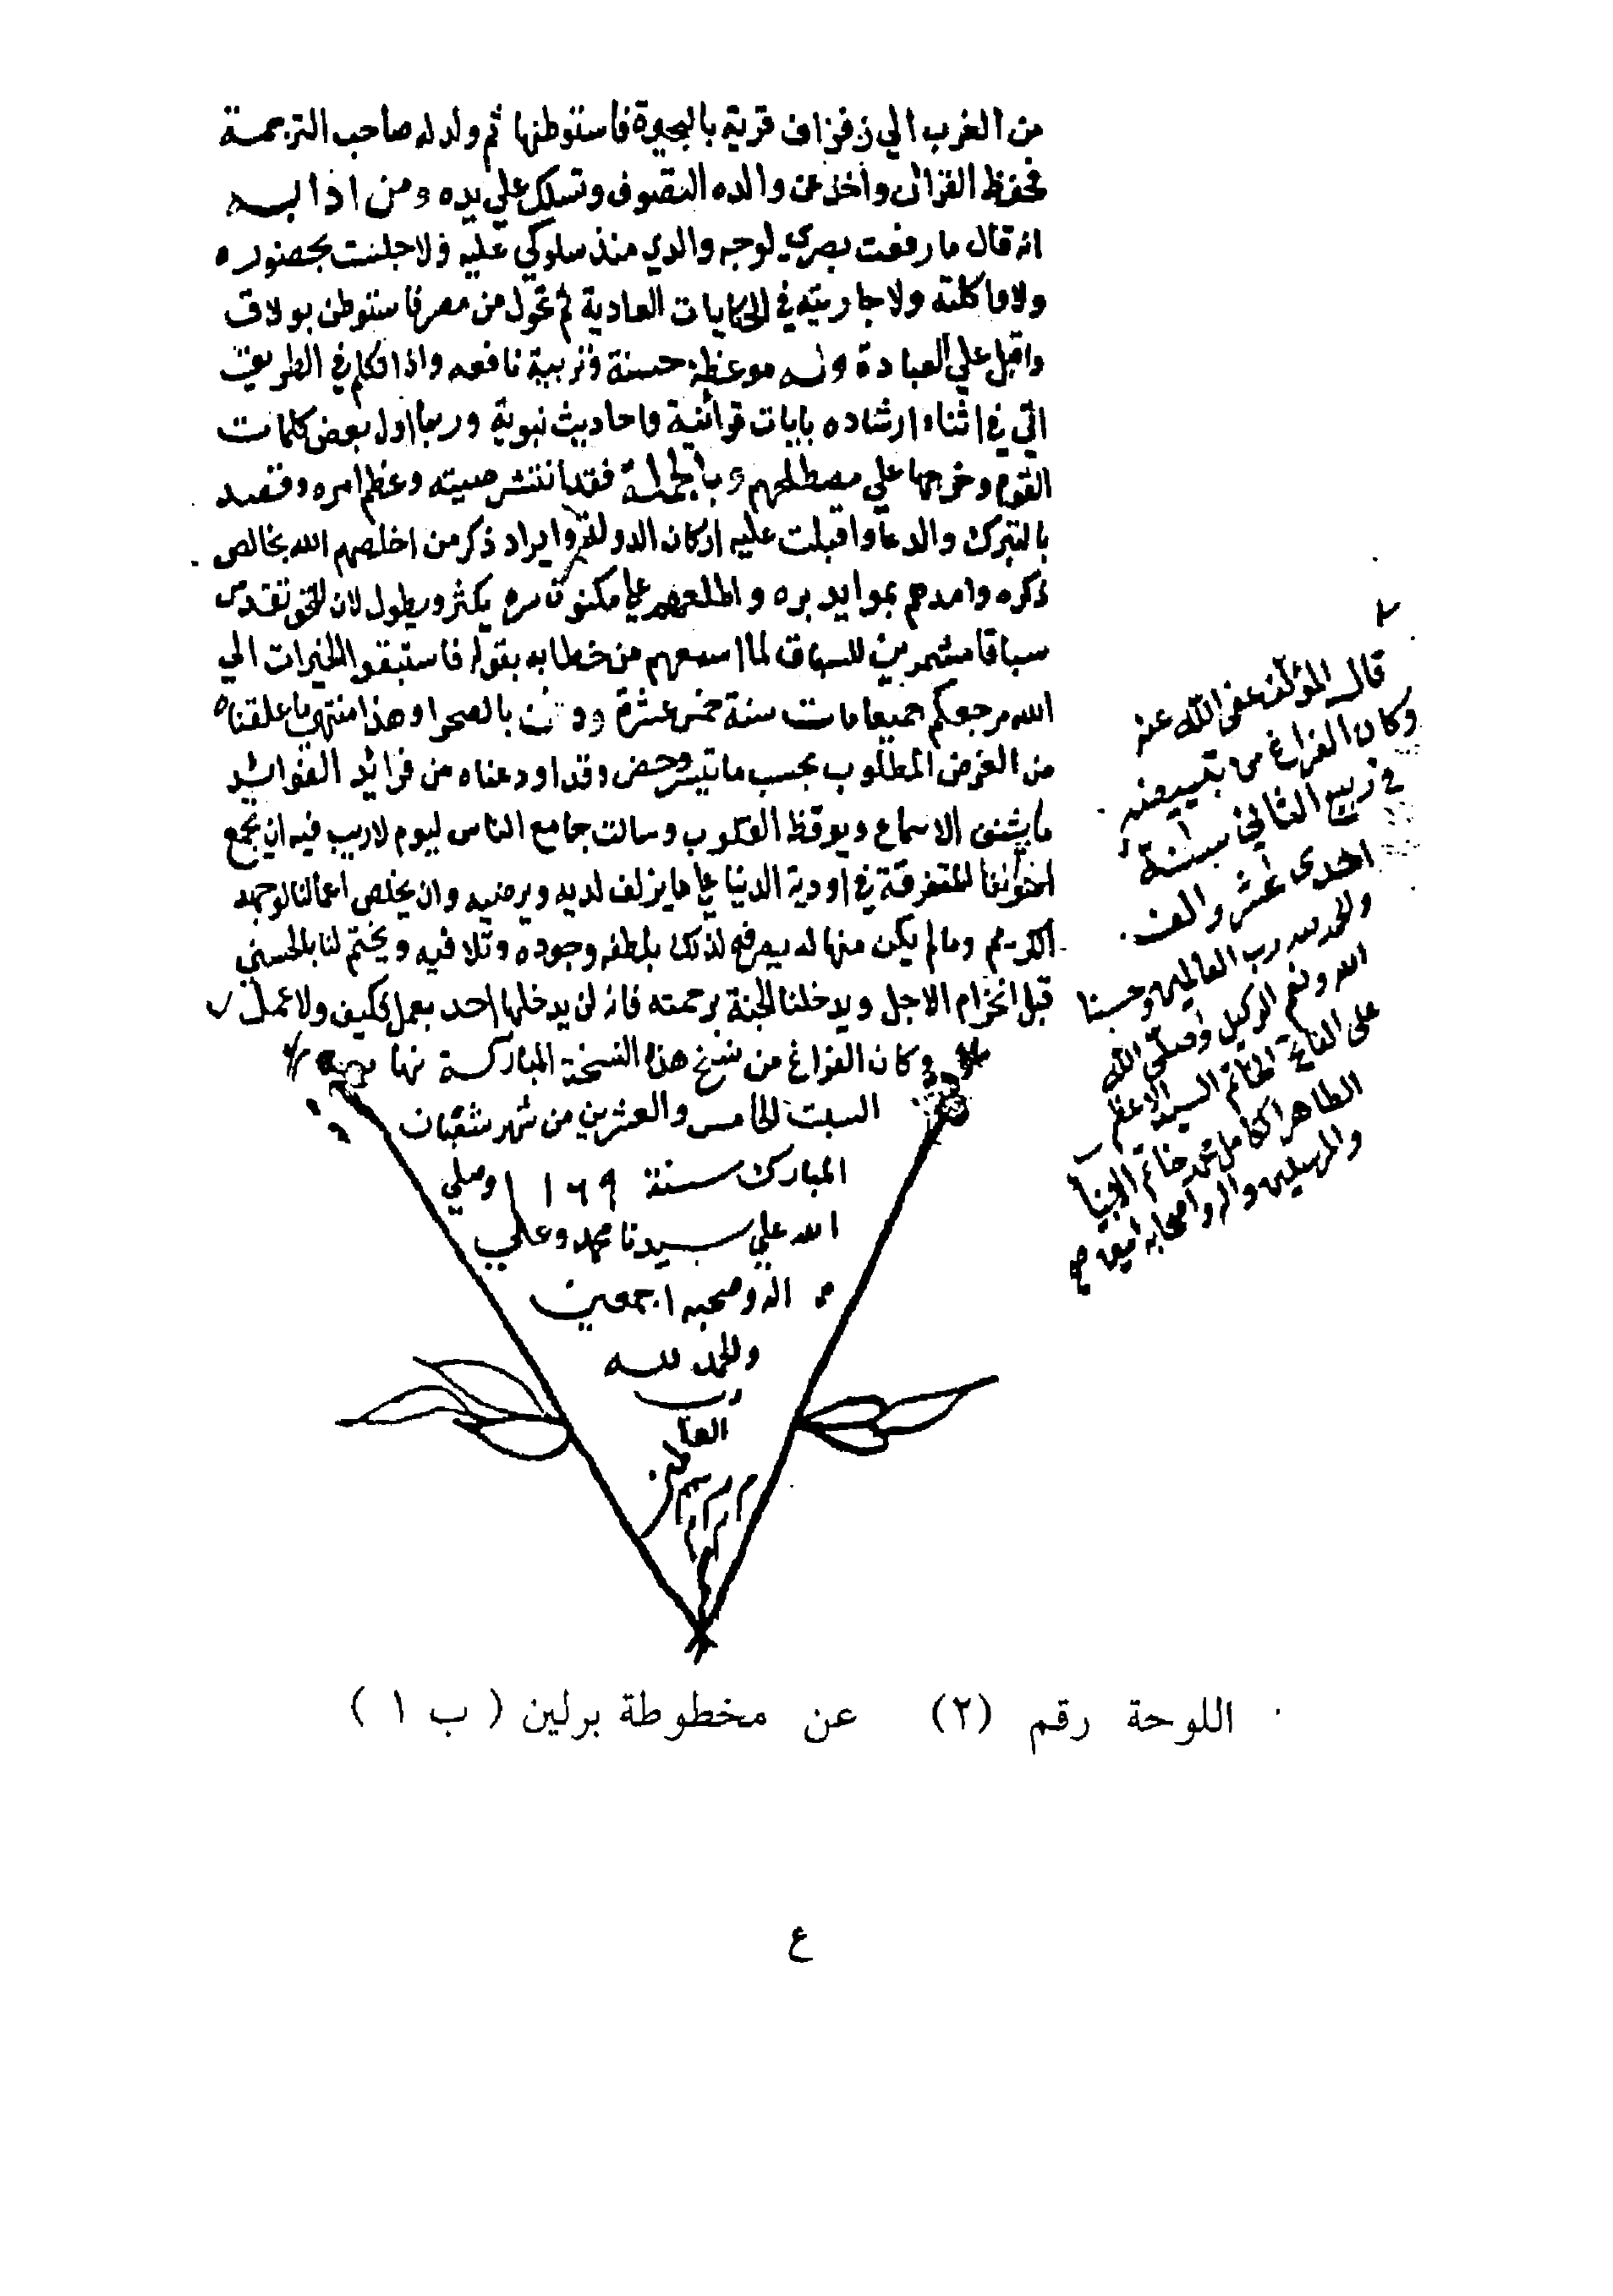 من الغرب الي زفزاف قرية بالبحيرة فاستوطنها ثم ولد له صاحب الترجمة
فحفظ القرآن وأخذ عن والده التصوف وتسلك علي يده ومن ادابه
انه قال ما رفعت بصري لوجه والدي منذ سلوكي عليه ولا جلست بحضوره
ولا واكلته ولا جاريته في الحكايات العادية ثم تحول من مصر فاستوطن بولاق
واقبل علي العبادة وله موعظة حسنة وتربية نافعه واذا تكلم في الطريق
اتي في اثناء ارشاده بايات قرآنية واحاديث نبوية وربما اول بعض كلمات
القوم وخرجها علي مصطلحهم وبالجملة فقد انتشر صيته وعظم امره وقصد
بالتبرك والدعا واقبلت عليه اركان الدولة وايراد ذكر من اخلصهم الله بخالص
ذكره وامدهم بموايد بره واطلعهم علي مكنون سره يكثر ويطول لان للحق تقدس
سباقا مشمرين للسباق لما اسمعهم من خطابه بقوله فاستبقوا الخيرات الي
الله مرجعكم جميعا مات سنة خمس عشرة ودفن بالصحرا وهذا منتهي ما علقناه
من الغرض المطلوب بحسب ما تيسر وحض وقد اودعناه من فرائد الفوائد
ما يشنف الاسماع ويوقظ القلوب وسالت جامع الناس ليوم لا ريب فيه ان يجمع
اخواننا المتفرقة في اودية الدنيا علي ما يزلف لديه ويرضيه وان يخلص اعمالنا لوجهه
الكريم وما لم يكن منها له يصرفه لذلك بلطفه وجوده وتلافيه ويختم لنا بالحسني
قبل انخرام الاجل ويدخلنا الجنة برحمته فانه لن يدخلها احد بعمل فكيف ولا عمل
وكان الفراغ من نسخ هذه النسخة المباركة نهار
السبت الخامس والعشرين من شهر شعبان
المبارك سنة ١١٦٩ وصلي
الله علي سيدنا محمد وعلي
اله وصحبه اجمعين
والحمد لله
رب
العا
لمين
قال المؤلف عفى الله عنه
وكان الفراغ من تبييضه
في ربيع الثاني سنة
احدى عشر والف
والحمد لله رب العالمين وحسبنا
الله ونعم الوكيل وصلى الله
على الفاتح الخاتم السيد الاعظم
الطاهر الكامل محمد خاتم الانبيا
والمرسلين واله واصحابه اجمعين
اللوحة رقم (٢) عن مخطوطة برلين (ب ١)
ع